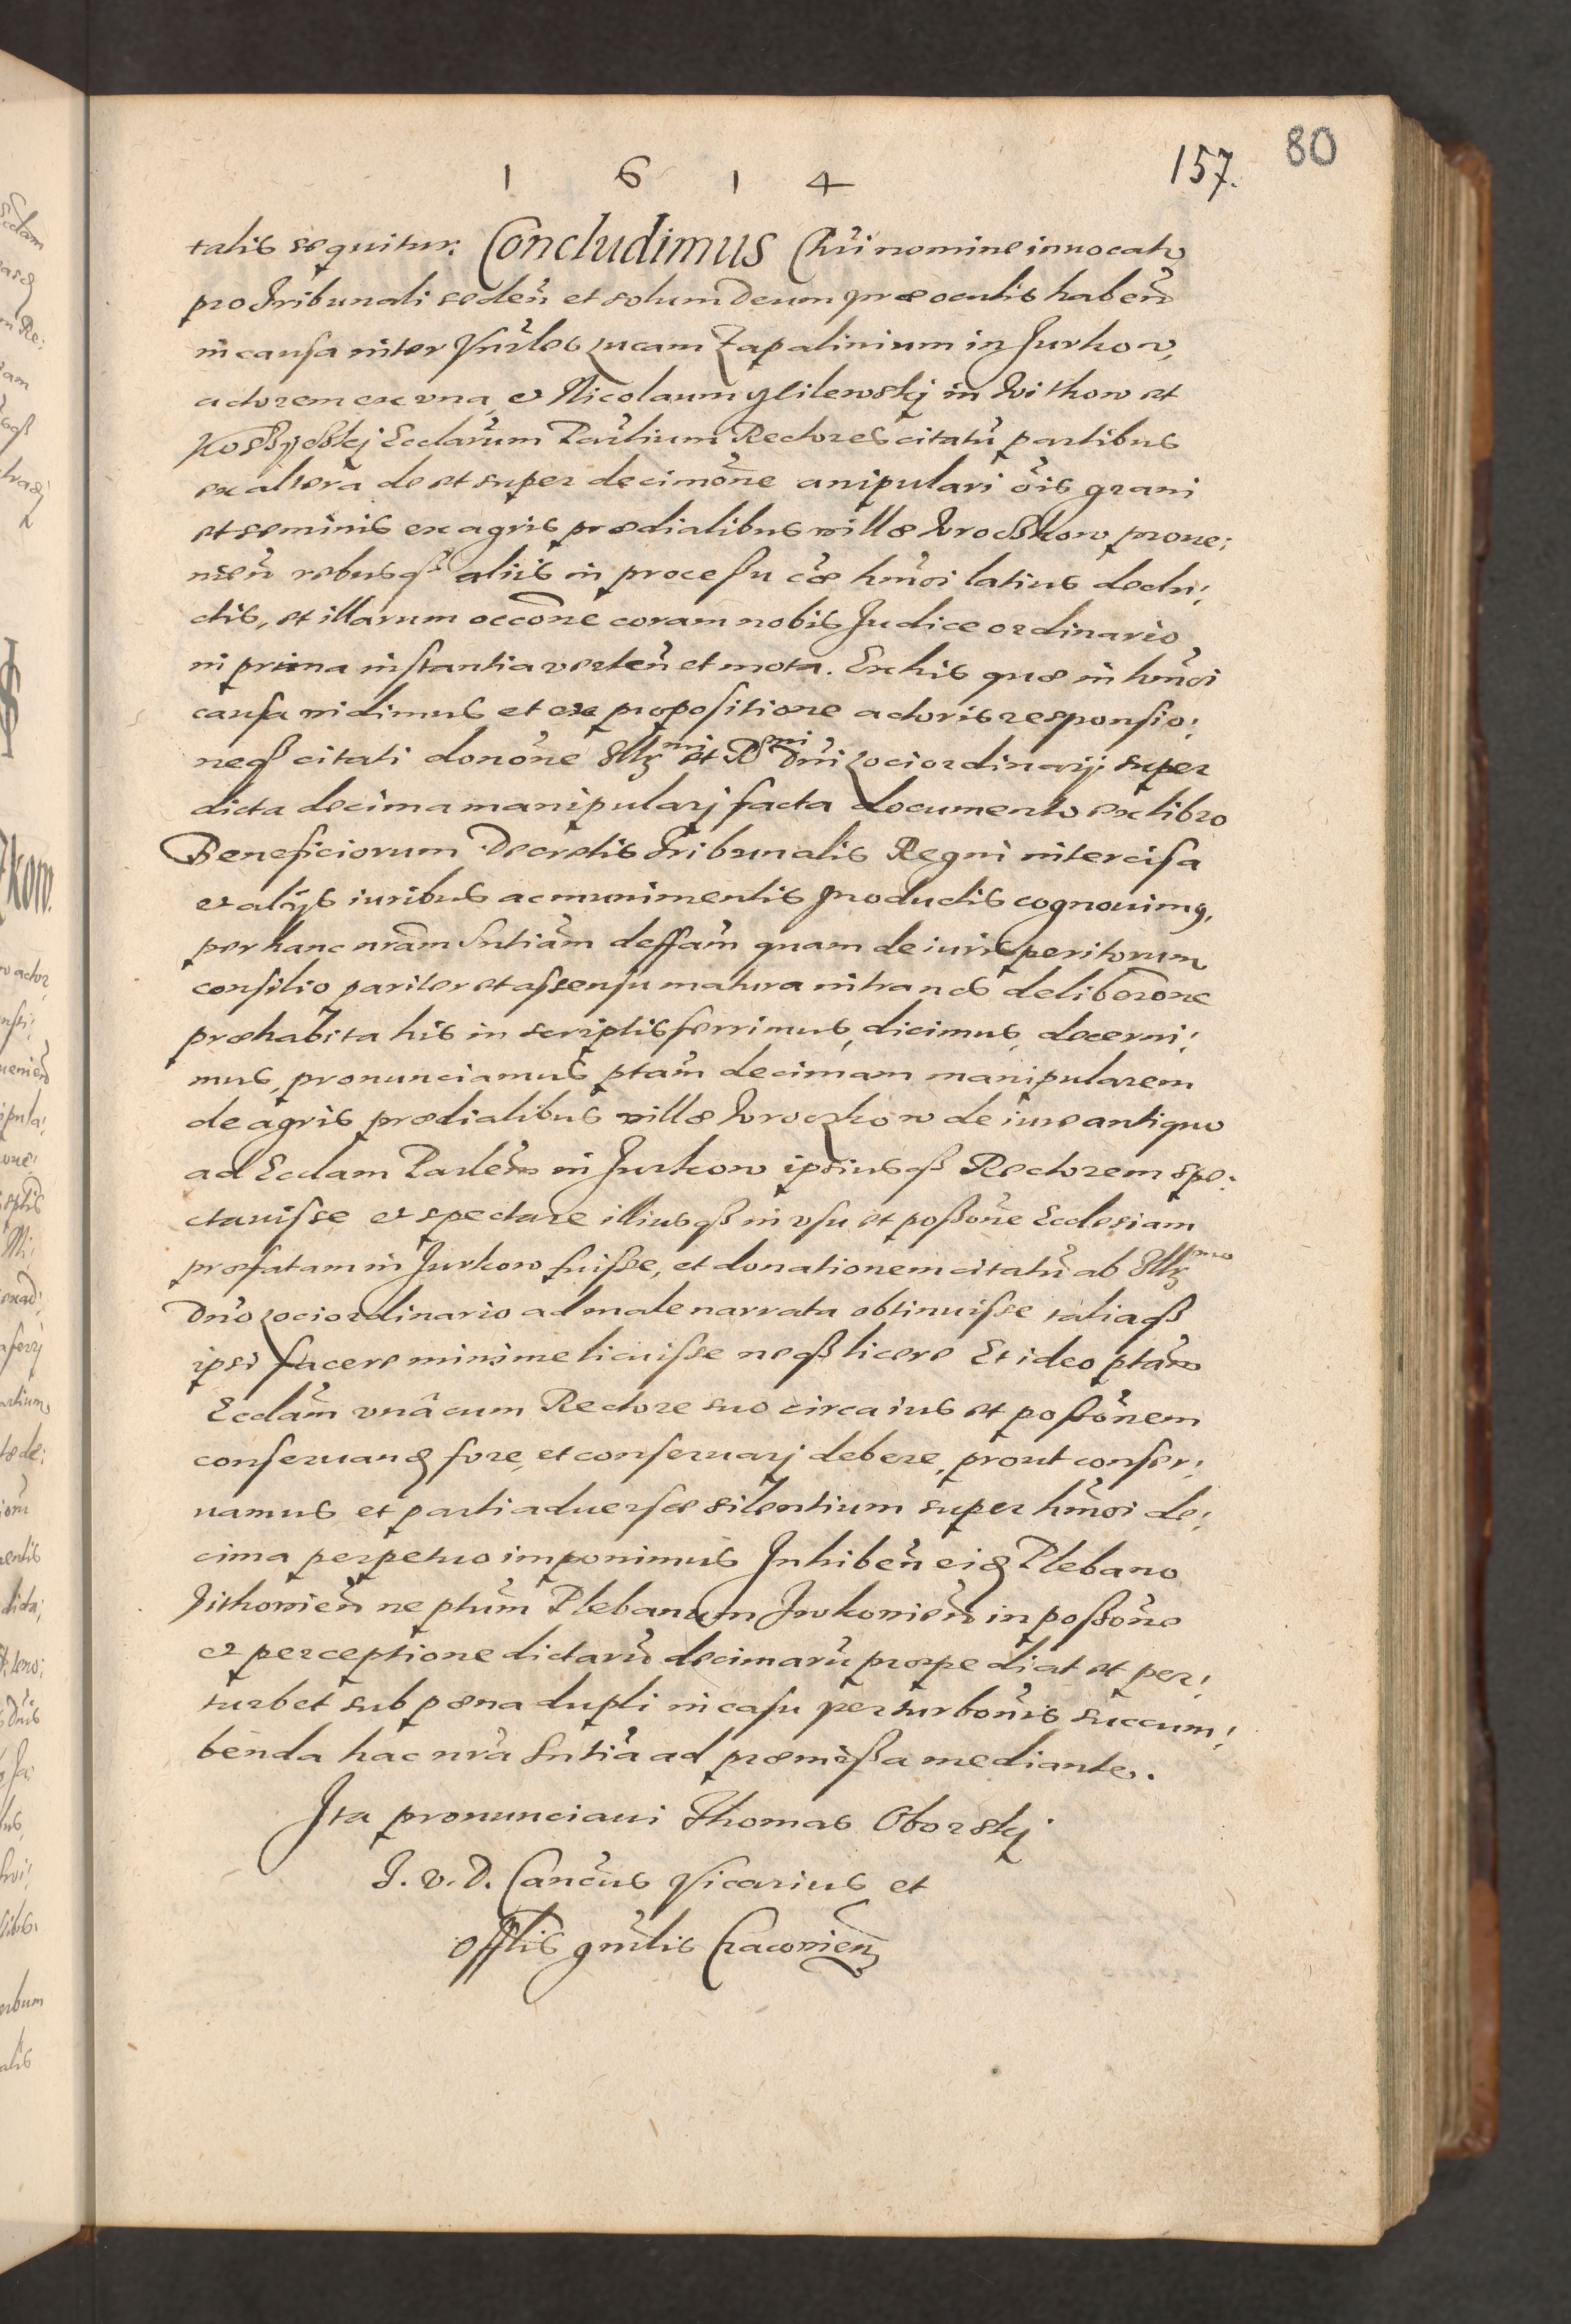 1 6 1 4
157.
80
talis sequitur: Concludimus Chri nomine inuocato
pro Tribunali seden et solum Deum præ oculis haben
in causa inter Vnrles Lucam Zapalinium in Jurkow,
actorem ex vna, et Nicolaum Gilewskj in Witkow et
Ecclarum Parlium Rectores citatu partibus
ex altera de et super decimone anipulari ois grani
et seminis ex agris prædialibus villæ Wrocskow proue:
nien rebusqß aliis in proceßu cæ hmoi latius dedu:
ctis, et illarum occone coram nobis Judice ordinario
in prima instantia verten et mota. Ex his quæ in hmoi
causa vidimus et ex propositione actoris responsio:
neqß citati donone Illmi et Rmi Dni Lociordinarij super
dicta decima manipularj facta documento ex libro
Beneficiorum Decretis Tribunalis Regni intercisa
et alijs iuribus ac munimentis productis cognouimq,
per hanc nram sntiam deffam quam de iuris peritorum
consilio pariter et assensu matura intra nos deliberone
præhabita his in scriptis ferrimus, dicimus, decerni:
mus, pronunciamus ptam decimam manipularem
de agris prædialibus villæ Wroczkow de iure antiquo
ad Ecclam Parlem in Jurkow ipsiusqß Rectorem spe:
ctauisse et spectare illiusqß in vsu et poßone Ecclesiam
præfatam in Jurkow fuisse, et donationem citatu ab Illmo
Dno Lociordinario ad male narrata obtinuisse taliaqß
ipsi facere minime licuisse neqß licere Et ideo ptam
Ecclam vnâ cum Rectore suo circa ius et poßonem
conseruand fore, et conseruarj debere, prout conser:
uamus et parti aduersæ silentium super hmoi de:
cima perpetuo imponimus Inhiben eid Plebano
Vithouien ne ptum Plebanum Jurkouien in poßone
et perceptione dictaru decimaru præpediat et per:
turbet sub pœna dupli in casu perturbonis succum:
benda hac nra sntia ad præmißa mediante.
Ita pronunciaui Thomas Oborskj
J. V. D. Cancus Vicarius et
Offlis gnrlis Cracouien